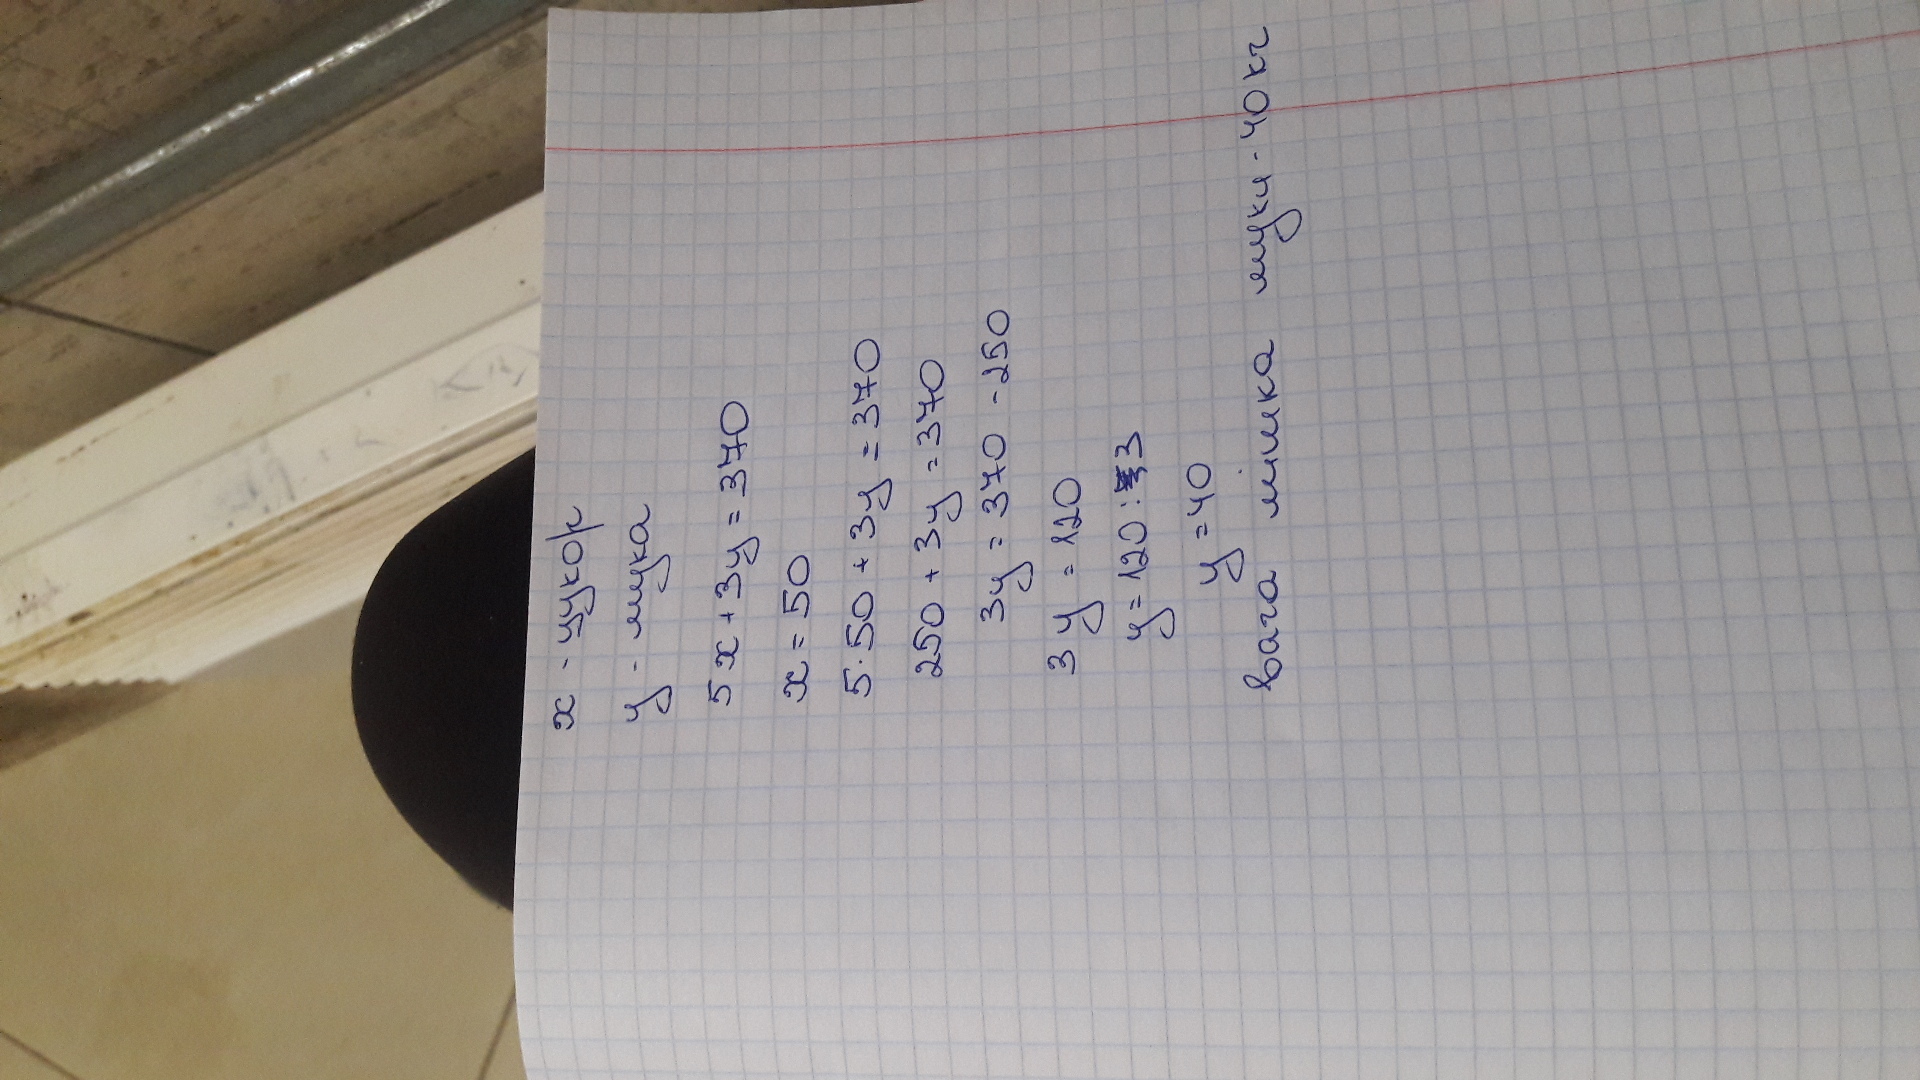 x - цукор
y - мука
5x + 3y = 370
x = 50
5·50 + 3y = 370
250 + 3y = 370
3y = 370 - 250
3y = 120
y = 120 : 3
y = 40
Вага мішка муки - 40 кг